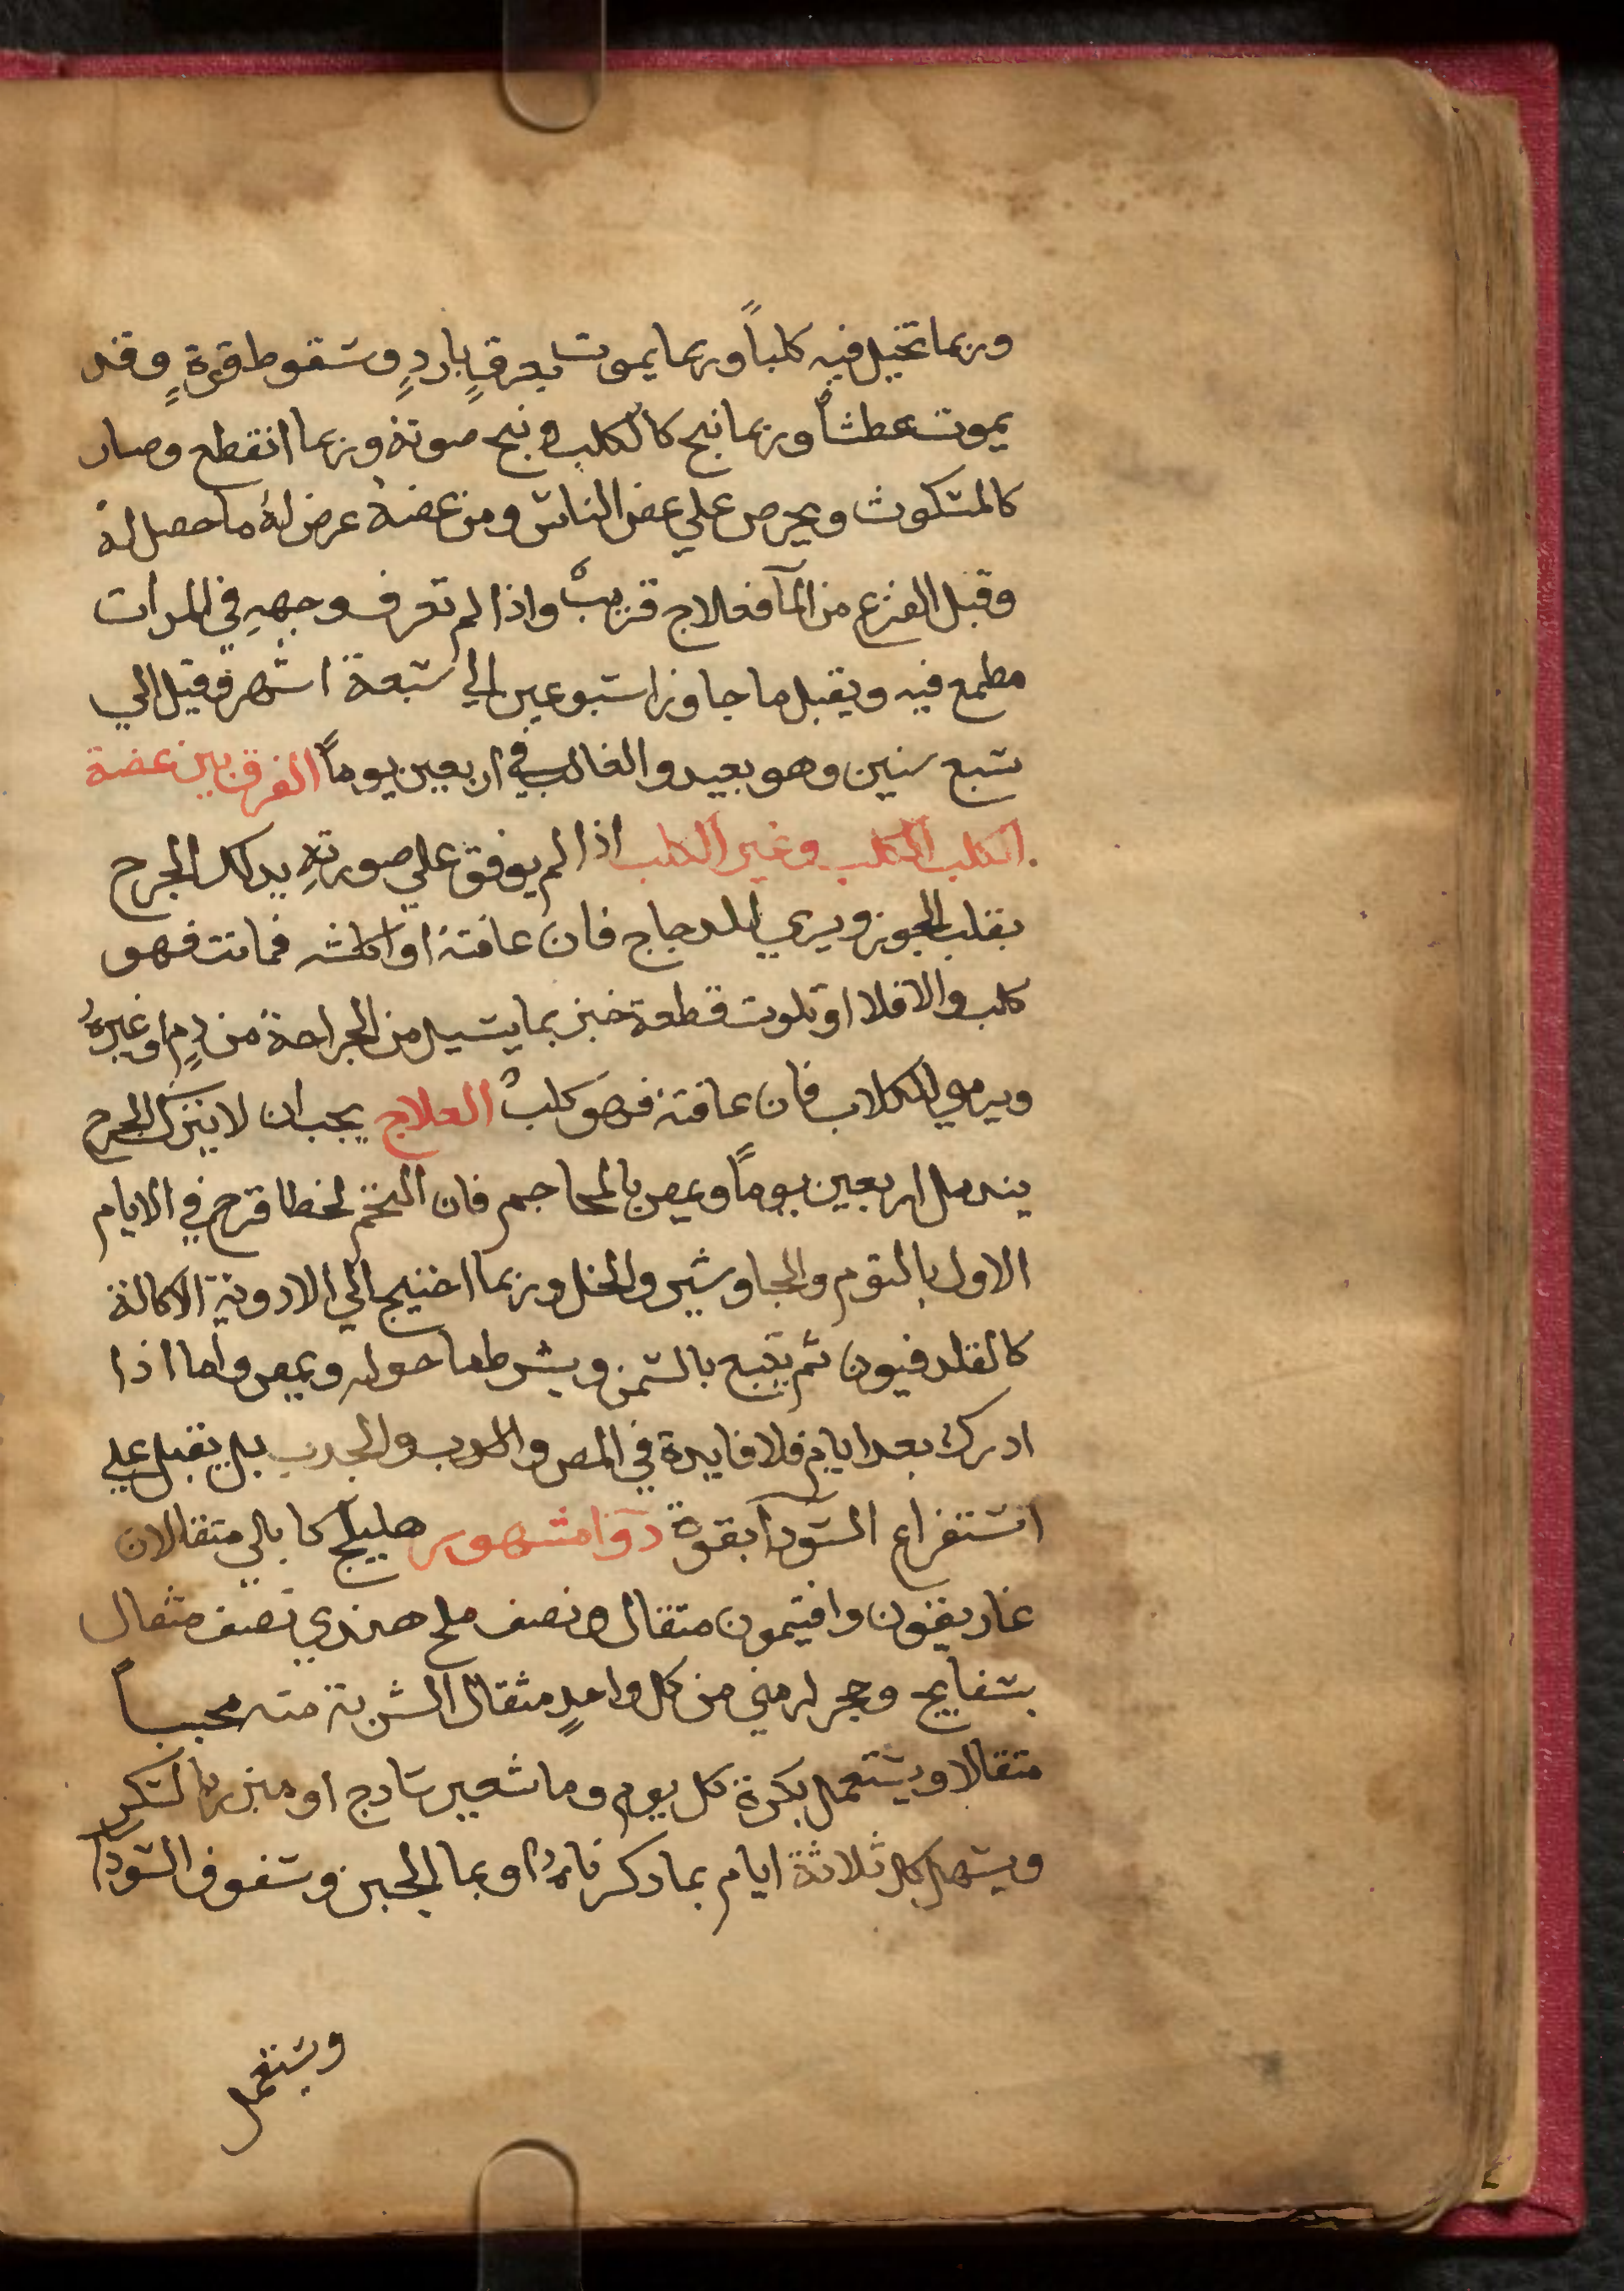 وربما تخيل فيه كلباً وربما يموت بعرقٍ باردٍ وسقوط قوةٍ وقد
يموت عطشاً وربما نبح كالكلب ونبح صوته وربما انقطع وصار
كالمسكوت ويحرص علي عض الناس ومن عضهُ عرض لهُ ما حصل له
وقبل الفزع من المآ فعلاج قريبٌ واذا لم تعرف وجههِ في المرات
مطمع فيه ويقبل ما جاوز اسبوعين الي سبعة اشهر فقيل الي
سبع سنين وهو بعيد والغالب في اربعين يوماً الفرق بين عضة
الكلب الكلب وغير الكلب اذا لم يوفق علي صورتهِ يدلك الجرح
بقلب الجوز ويرمي للدجاج فان عافته او اكلته فماتت فهو
كلب والا فلا او تلوت قطعة خبز بما يسيل من الجراحة من دمٍ او غيرهُ
ويرمي للكلاب فان عافته فهو كلبٌ العلاج يجب ان لا يترك الجرح
يندمل اربعين يوماً ويمص بالمحاجم فان التحم لخطا قرح في الايام
الاول بالتوم والجاوشير والخل وربما احتيج الي الادوية الاكالة
كالقلدفيون ثم يتبع بالسمن ويشرط ما حوله ويمص واما اذا
ادرك بعد ايام فلا فايدة في المص و والجدب بل يقبل علي
استفراغ السودآ بقوة دوا مشهور هليلج كابالي متقالان
غاريقون وافتيمون متقال ونصف ملح هندي نصف مثقال
بسفايج وحجر ارمني من كل واحدٍ مثقال الشربة منه محبباً
متقالا ويستعمل بكرة كل يوم وما شعير سادج او مبزر بالسكر
ويسهل كل ثلاثة ايام بما دكرناهُ او بما الجبن وسفوف السودآ
ويستعمل